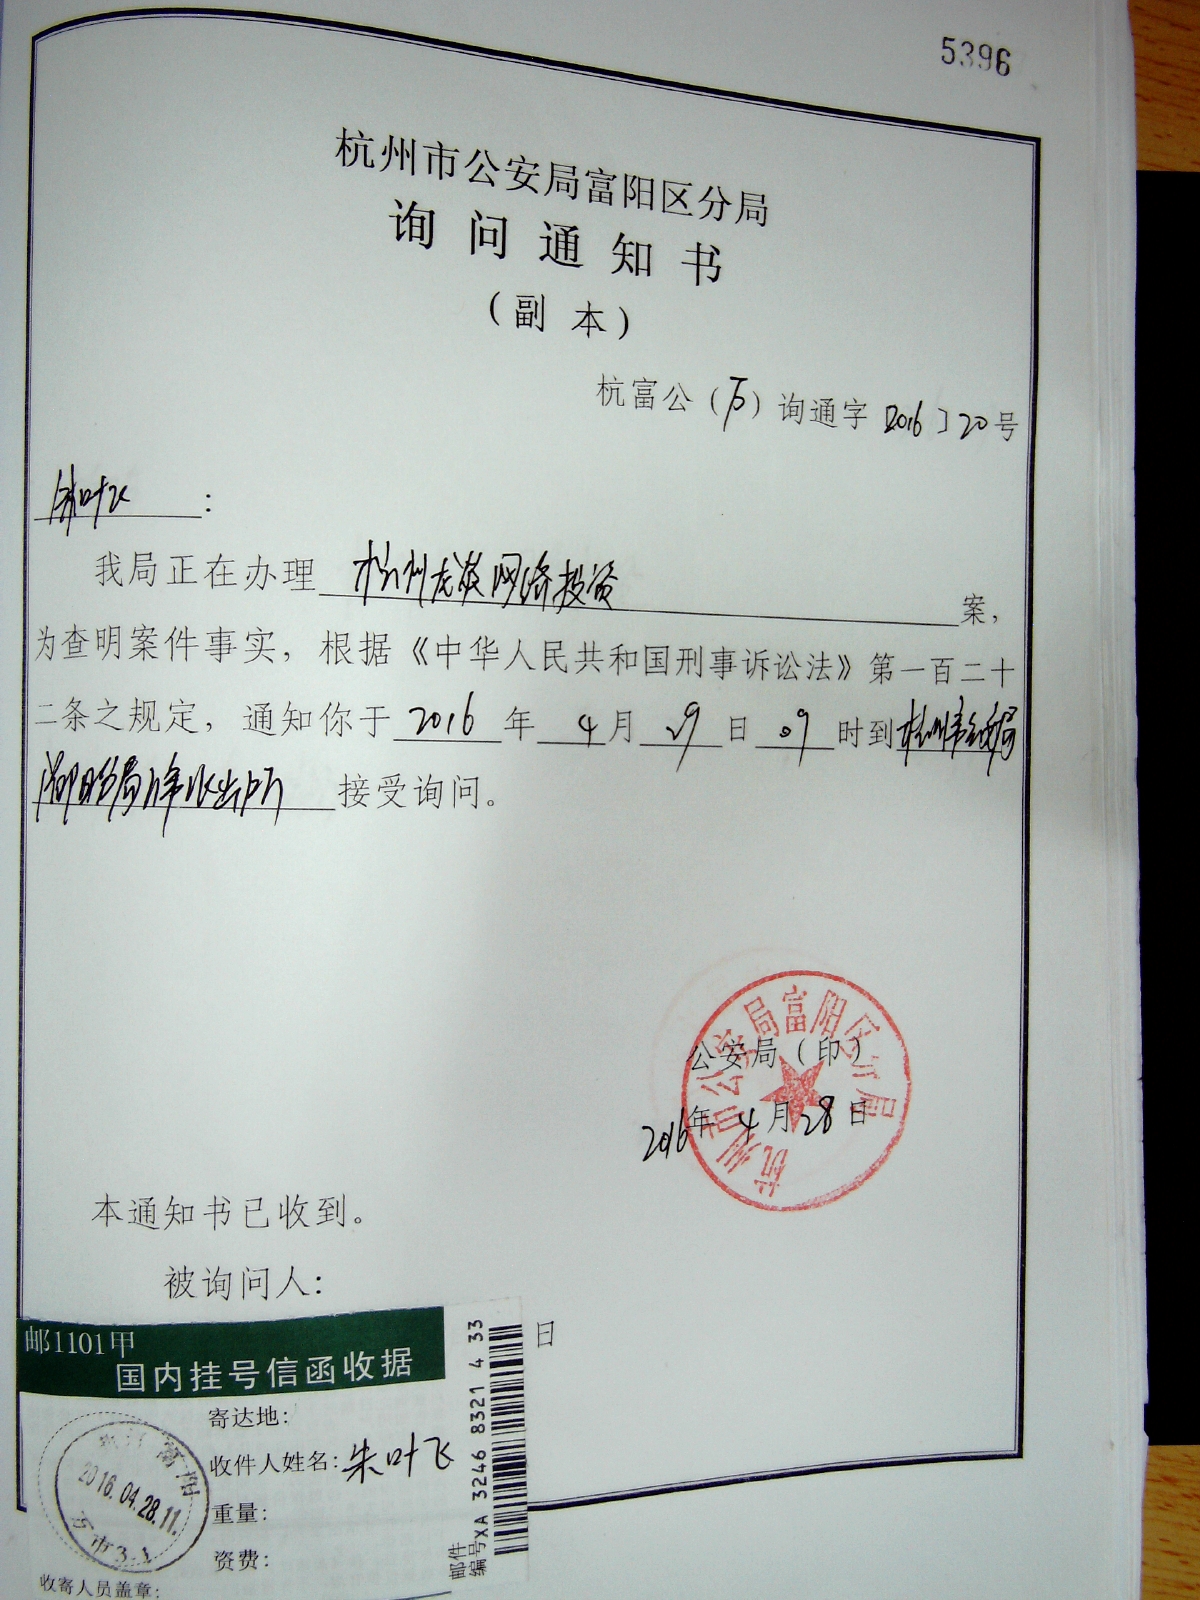 5396
杭州市公安局富阳区分局
询问通知书
(副 本)
杭富公(万)询通字〔2016〕20号
朱叶飞:
我局正在办理 杭州龙炎网络投资 案,
为查明案件事实, 根据《中华人民共和国刑事诉讼法》第一百二十
二条之规定, 通知你于 2016 年 4 月 29 日 09 时到 杭州市公安局
富阳分局 派出所 接受询问。
公安局(印)
2016年 4 月 28 日
杭州市公安局富阳区分局
本通知书已收到。
被询问人:
日
邮1101甲
国内挂号信函收据
寄达地:
收件人姓名: 朱叶飞
重量:
资费:
收寄人员盖章:
富阳
2016.04.28.11
市3-1
邮件
编号XA 3246 8321 4 33